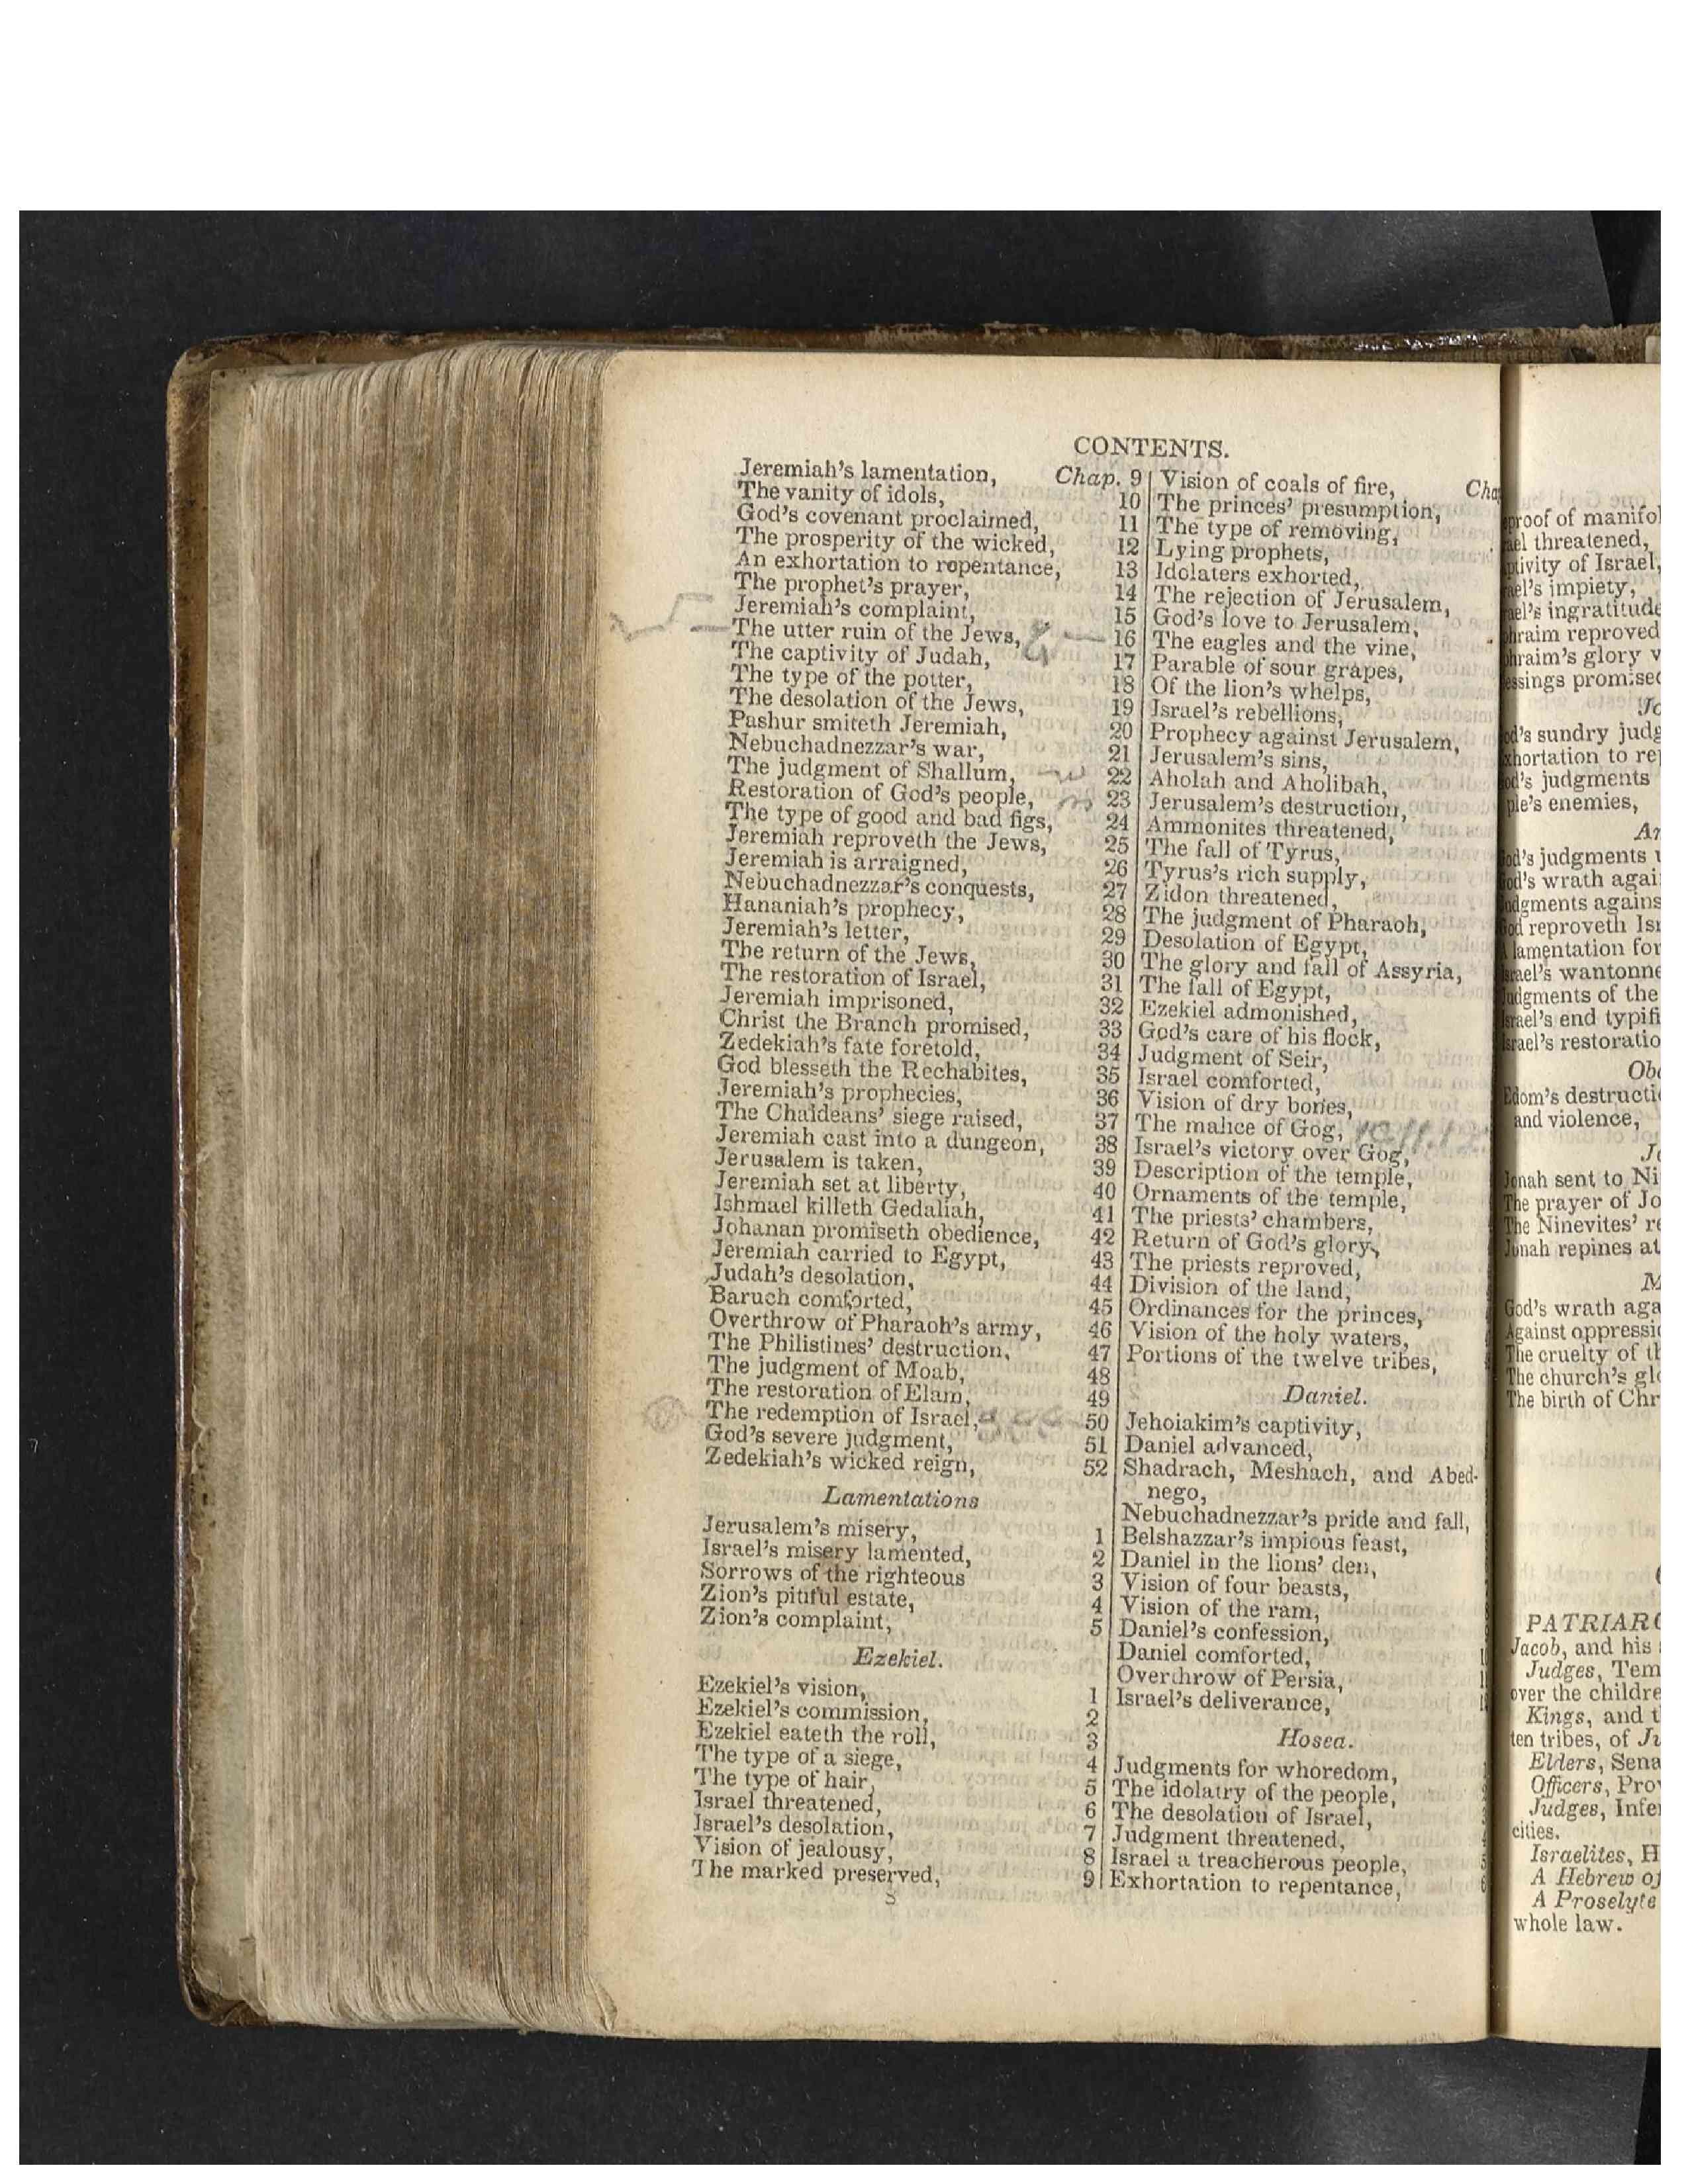 CONTENTS.
Jeremiah's lamentation, Chap. 9
The vanity of idols, 10
God's covenant proclaimed, 11
The prosperity of the wicked, 12
An exhortation to repentance, 13
The prophet's prayer, 14
Jeremiah's complaint, 15
The utter ruin of the Jews, 16
The captivity of Judah, 17
The type of the potter, 18
The desolation of the Jews, 19
Pashur smiteth Jeremiah, 20
Nebuchadnezzar's war, 21
The judgment of Shallum, 22
Restoration of God's people, 23
The type of good and bad figs, 24
Jeremiah reproveth the Jews, 25
Jeremiah is arraigned, 26
Nebuchadnezzar's conquests, 27
Hananiah's prophecy, 28
Jeremiah's letter, 29
The return of the Jews, 30
The restoration of Israel, 31
Jeremiah imprisoned, 32
Christ the Branch promised, 33
Zedekiah's fate foretold, 34
God blesseth the Rechabites, 35
Jeremiah's prophecies, 36
The Chaldeans' siege raised, 37
Jeremiah cast into a dungeon, 38
Jerusalem is taken, 39
Jeremiah set at liberty, 40
Ishmael killeth Gedaliah, 41
Johanan promiseth obedience, 42
Jeremiah carried to Egypt, 43
Judah's desolation, 44
Baruch comforted, 45
Overthrow of Pharaoh's army, 46
The Philistines' destruction, 47
The judgment of Moab, 48
The restoration of Elam, 49
The redemption of Israel, 50
God's severe judgment, 51
Zedekiah's wicked reign, 52
Lamentations
Jerusalem's misery, 1
Israel's misery lamented, 2
Sorrows of the righteous 3
Zion's pitiful estate, 4
Zion's complaint, 5
Ezekiel.
Ezekiel's vision, 1
Ezekiel's commission, 2
Ezekiel eateth the roll, 3
The type of a siege, 4
The type of hair, 5
Israel threatened, 6
Israel's desolation, 7
Vision of jealousy, 8
The marked preserved, 9
8
Vision of coals of fire, Cha
The princes' presumption,
The type of removing,
Lying prophets,
Idolaters exhorted,
The rejection of Jerusalem,
God's love to Jerusalem,
The eagles and the vine,
Parable of sour grapes,
Of the lion's whelps,
Israel's rebellions,
Prophecy against Jerusalem,
Jerusalem's sins,
Aholah and Aholibah,
Jerusalem's destruction,
Ammonites threatened,
The fall of Tyrus,
Tyrus's rich supply,
Zidon threatened,
The judgment of Pharaoh,
Desolation of Egypt,
The glory and fall of Assyria,
The fall of Egypt,
Ezekiel admonished,
God's care of his flock,
Judgment of Seir,
Israel comforted,
Vision of dry bones,
The malice of Gog,
Israel's victory over Gog,
Description of the temple,
Ornaments of the temple,
The priests' chambers,
Return of God's glory,
The priests reproved,
Division of the land,
Ordinances for the princes,
Vision of the holy waters,
Portions of the twelve tribes,
Daniel.
Jehoiakim's captivity,
Daniel advanced,
Shadrach, Meshach, and Abed-
nego,
Nebuchadnezzar's pride and fall,
Belshazzar's impious feast,
Daniel in the lions' den,
Vision of four beasts,
Vision of the ram,
Daniel's confession,
Daniel comforted,
Overthrow of Persia,
Israel's deliverance,
Hosea.
Judgments for whoredom,
The idolatry of the people,
The desolation of Israel,
Judgment threatened,
Israel a treacherous people,
Exhortation to repentance,
proof of manifol
ael threatened,
ptivity of Israel,
ael's impiety,
ael's ingratitude
hraim reproved
hraim's glory v
essings promised
Jo
od's sundry judg
xhortation to rep
od's judgments
ple's enemies,
Am
God's judgments
God's wrath agai
Judgments agains
God reproveth Isr
A lamentation for
Israel's wantonne
Judgments of the
Israel's end typifi
Israel's restoratio
Oba
Edom's destructi
and violence,
Jo
Jonah sent to Ni
The prayer of Jo
The Ninevites' re
Jonah repines at
M
God's wrath aga
Against oppressi
The cruelty of th
The church's glo
The birth of Chr
PATRIARC
Jacob, and his
Judges, Tem
over the childre
Kings, and t
ten tribes, of Ju
Elders, Sena
Officers, Prov
Judges, Infer
cities.
Israelites, H
A Hebrew of
A Proselyte
whole law.